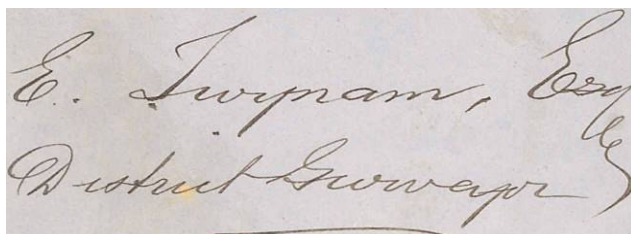 E. Twynam, Esqre
District Surveyor